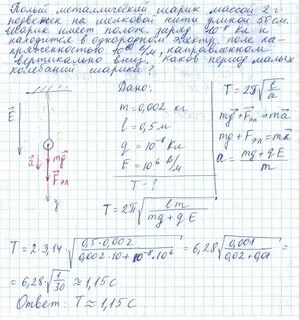 Полый металлический шарик массой 2 г
подвешен на шелковой нити длиной 50 см.
Шарик имеет полож. заряд 10⁻⁸ Кл и
находится в однородном электр. поле
напряженностью 10⁶ В/м, направленном
вертикально вниз. Каков период малых
колебаний шарика?
Дано:
m = 0,002 кг
l = 0,5 м
q = 10⁻⁸ Кл
E = 10⁶ В/м
T - ?
E
a
mg
Fэл
y
T = 2π√(l/a)
mg + Fэл = ma
mg + Fэл = ma
a = (mg + qE)/m
T = 2π√(lm/(mg + qE))
T = 2·3,14·√(0,5·0,002/(0,002·10 + 10⁻⁸·10⁶)) = 6,28√(0,001/(0,02 + 0,01)) =
= 6,28·√(1/30) ≈ 1,15 с
Ответ: T ≈ 1,15 с